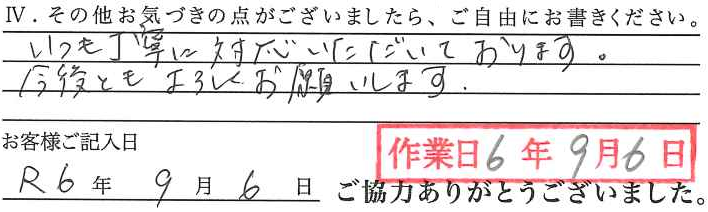 Ⅳ．その他お気づきの点がございましたら、ご自由にお書きください。
いつも丁寧に対応いただいております。
今後ともよろしくお願いします．
お客様ご記入日
作業日6年9月6日
R6年9月6日 ご協力ありがとうございました。